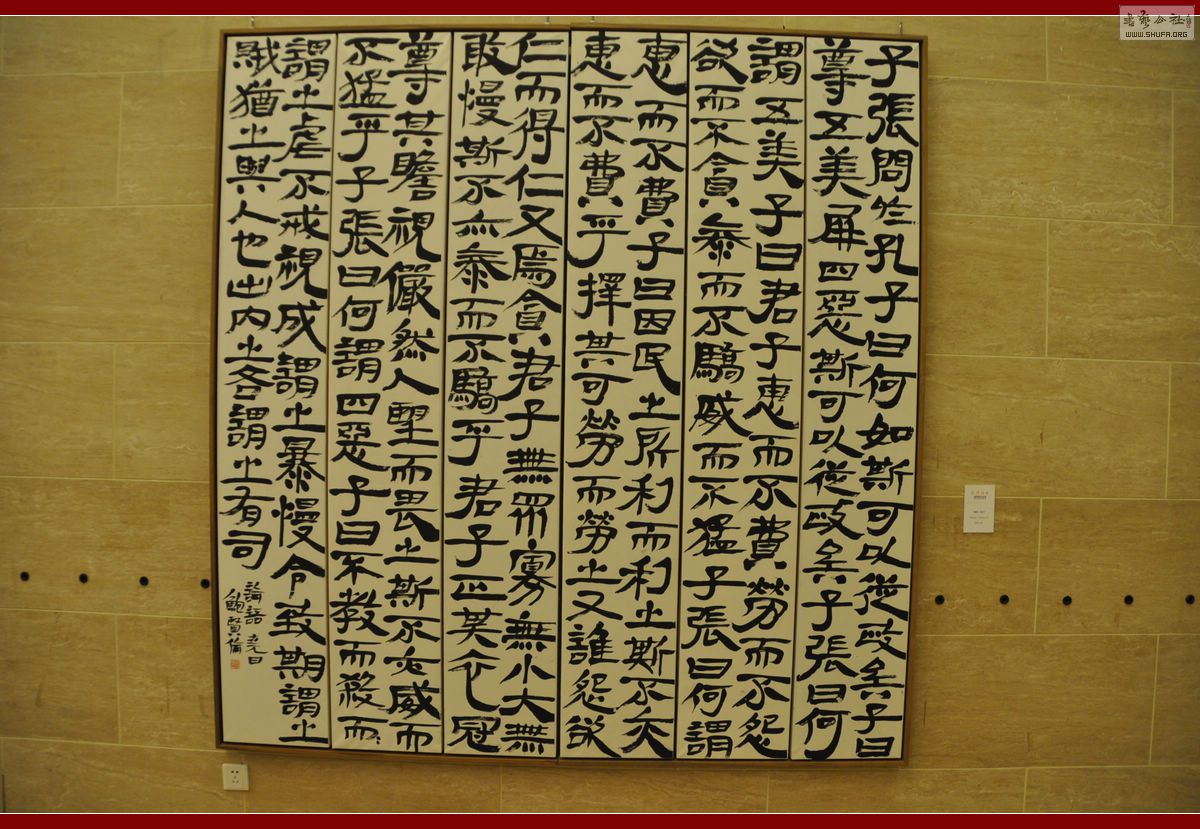 子張問於孔子曰何如斯可以從政矣子曰
尊五美屏四惡斯可以從政矣子張曰何
謂五美子曰君子惠而不費勞而不怨
欲而不貪泰而不驕威而不猛子張曰何謂
惠而不費子曰因民之所利而利之斯不亦
惠而不費乎擇其可勞而勞之又誰怨欲
仁而得仁又焉貪君子無眾寡無小大無
敢慢斯不亦泰而不驕乎君子正其衣冠
尊其瞻視儼然人望而畏之斯不亦威而
不猛乎子張曰何謂四惡子曰不教而殺而
謂之虐不戒視成謂之暴慢令致期謂之
賊猶之與人也出內之吝謂之有司
論語 堯曰
鮑賢倫
WWW.SHUFA.ORG